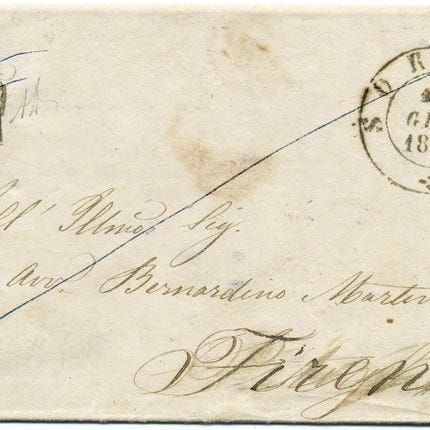 SOR
GE
18
All' Illmo. Sig.
Avv. Bernardino Martin
Firen